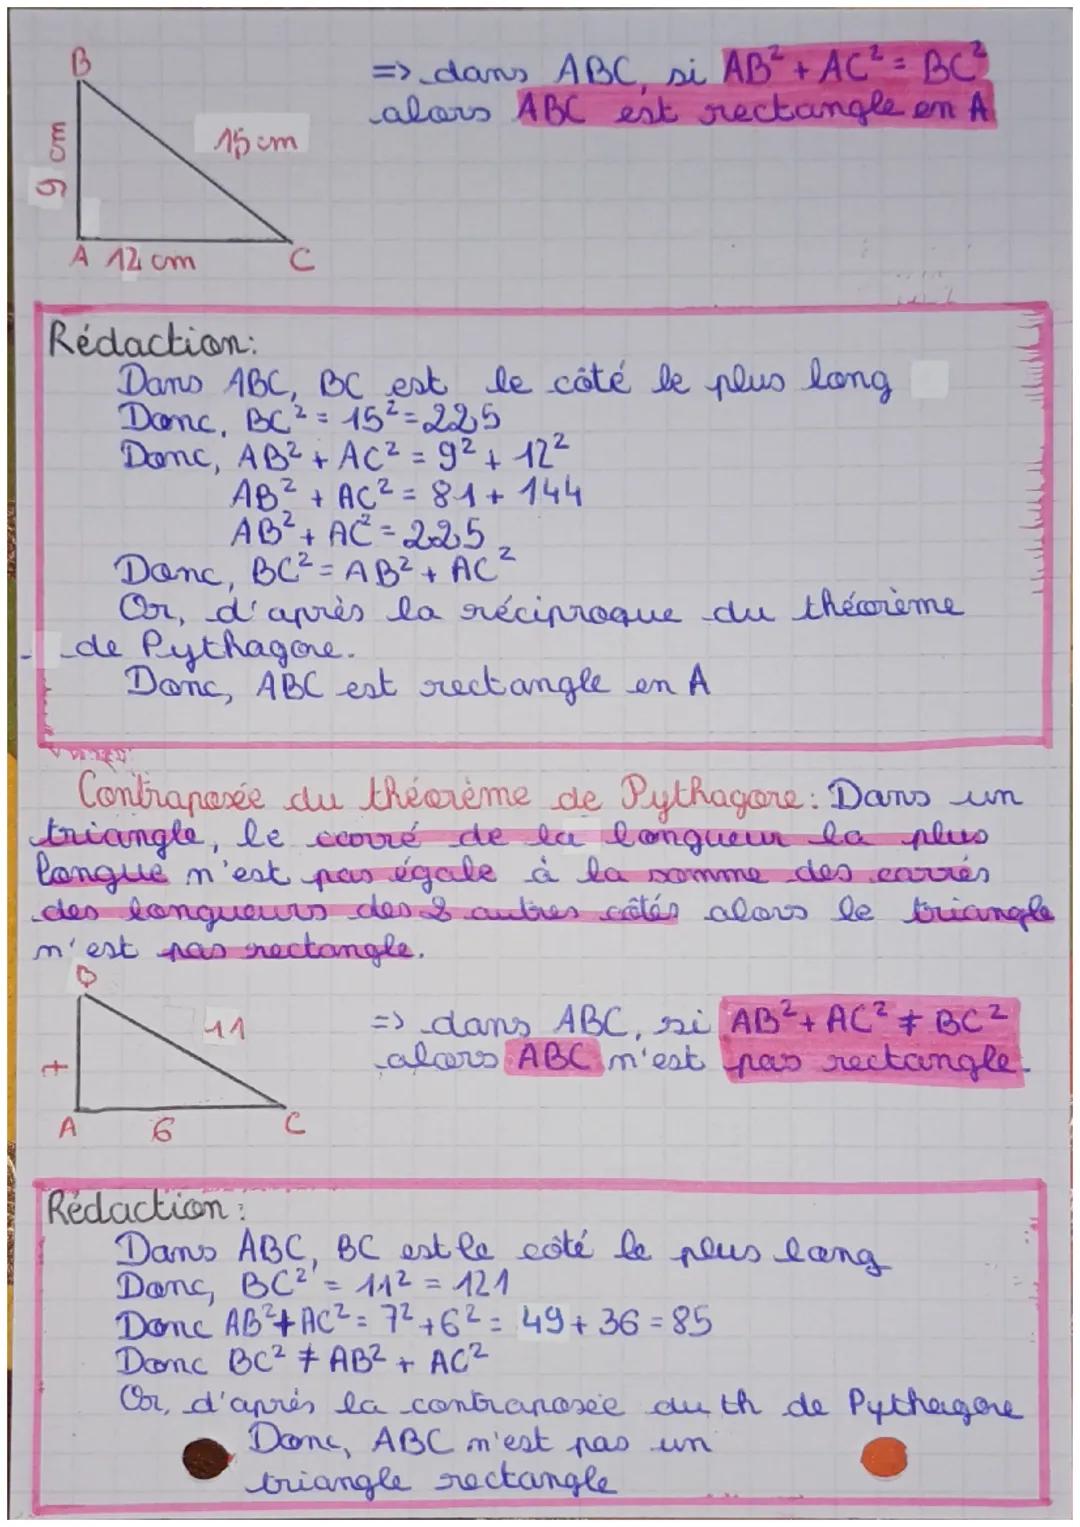 B
=> dans ABC, si AB² + AC² = BC²
alors ABC est rectangle en A
15 cm
9 cm
A 12 cm C
Rédaction:
Dans ABC, BC est le côté le plus long
Donc, BC² = 15² = 225
Donc, AB² + AC² = 9² + 12²
AB² + AC² = 81 + 144
AB² + AC² = 225
Donc, BC² = AB² + AC²
Or, d'après la réciproque du théorème
de Pythagore.
Donc, ABC est rectangle en A
Contraposée du théorème de Pythagore: Dans un
triangle, le carré de la longueur la plus
longue n'est pas égale à la somme des carrés
des longueurs des 2 autres côtés alors le triangle
n'est pas rectangle.
11
=> dans ABC, si AB² + AC² ≠ BC²
alors ABC n'est pas rectangle.
7
A 6 C
Rédaction:
Dans ABC, BC est le côté le plus long
Donc, BC² = 11² = 121
Donc AB² + AC² = 7² + 6² = 49 + 36 = 85
Donc BC² ≠ AB² + AC²
Or, d'après la contraposée du th de Pythagore
Donc, ABC n'est pas un
triangle rectangle